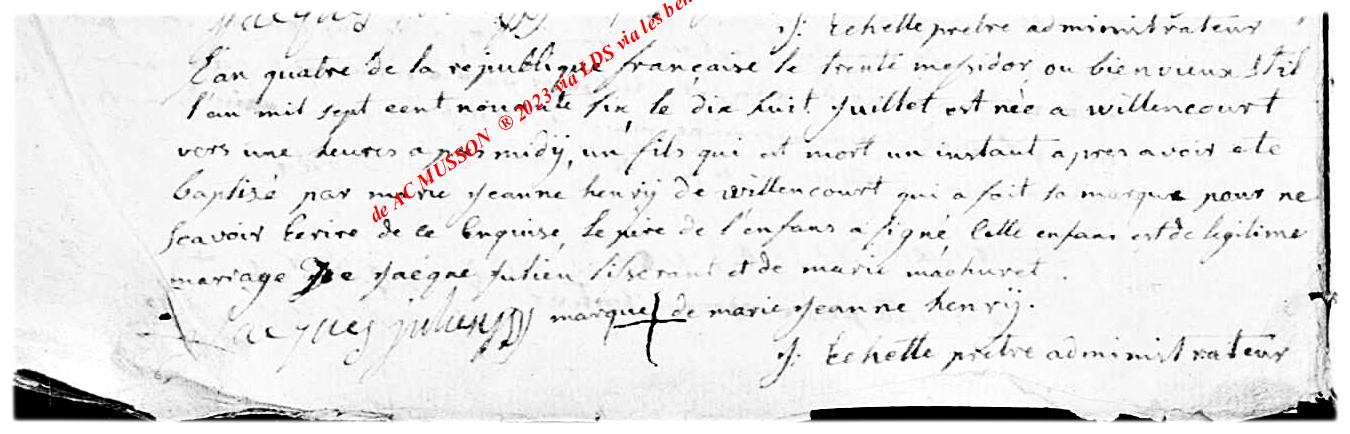 Jacques
J. Echelle pretre administrateur
L'an quatre de la république française le trente messidor, ou bienvieux Stil
l'an mil sept cent nonante six, le dix huit Juillet est née a willencourt
vers une heures apres midÿ, un fils qui est mort un instant apres avoir ete
baptisé par marie Jeanne henrÿ de willencourt qui a fait sa marque pour ne
scavoir Ecrire de ce Enquise, le père de l'enfans a signé, Celle enfans est de legitime
mariage De Jacque Julien et de marie machuret.
Jacques julien marque de marie Jeanne henrÿ.
J. Echelle pretre administrateur
de AC MUSSON ® 2023 via LDS via les ben